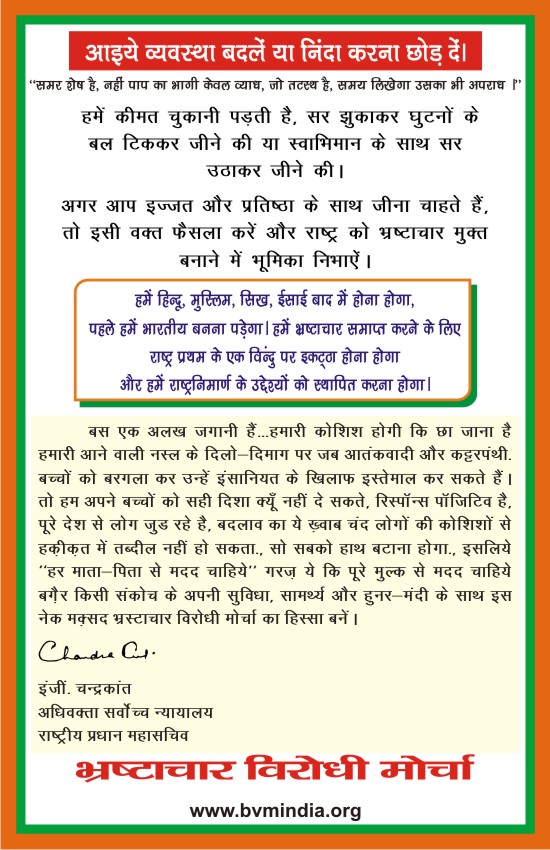 आइये व्यवस्था बदलें या निंदा करना छोड़ दें।
“समर शेष है, नहीं पाप का भागी केवल व्याध, जो तटस्थ है, समय लिखेगा उसका भी अपराध ।”
हमें कीमत चुकानी पड़ती है, सर झुकाकर घुटनों के
बल टिककर जीने की या स्वाभिमान के साथ सर
उठाकर जीने की।
अगर आप इज्जत और प्रतिष्ठा के साथ जीना चाहते हैं,
तो इसी वक्त फैसला करें और राष्ट्र को भ्रष्टाचार मुक्त
बनाने में भूमिका निभाऐं।
हमें हिन्दू, मुस्लिम, सिख, ईसाई बाद में होना होगा,
पहले हमें भारतीय बनना पड़ेगा। हमें भ्रष्टाचार समाप्त करने के लिए
राष्ट्र प्रथम के एक विन्दु पर इकट्ठा होना होगा
और हमें राष्ट्रनिमार्ण के उद्देश्यों को स्थापित करना होगा।
बस एक अलख जगानी हैं...हमारी कोशिश होगी कि छा जाना है
हमारी आने वाली नस्ल के दिलो–दिमाग पर जब आतंकवादी और कट्टरपंथी.
बच्चों को बरगला कर उन्हें इंसानियत के खिलाफ इस्तेमाल कर सकते हैं।
तो हम अपने बच्चों को सही दिशा क्यूँ नहीं दे सकते, रिस्पॉन्स पॉजिटिव है,
पूरे देश से लोग जुड रहे है, बदलाव का ये ख़्वाब चंद लोगों की कोशिशों से
हक़ीक़त में तब्दील नहीं हो सकता., सो सबको हाथ बटाना होगा., इसलिये
''हर माता–पिता से मदद चाहिये'' गरज़ ये कि पूरे मुल्क से मदद चाहिये
बग़ैर किसी संकोच के अपनी सुविधा, सामर्थ्य और हुनर–मंदी के साथ इस
नेक मक़्सद भ्रस्टाचार विरोधी मोर्चा का हिस्सा बनें।
इंजीं. चन्द्रकांत
अधिवक्ता सर्वोच्च न्यायालय
राष्ट्रीय प्रधान महासचिव
भ्रष्टाचार विरोधी मोर्चा
www.bvmindia.org